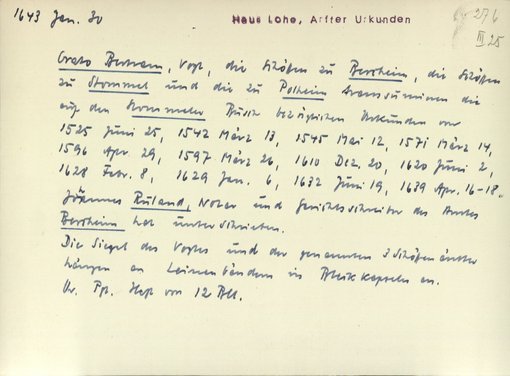 1643 Jan. 30
Haus Lohe, Arfter Urkunden
276
II 25
Crato Bertram, Vogt, die Schöffen zu Bercheim, die Schöffen
zu Stommel und die zu Polheim transsumieren die
auf den Stommeler Busch bezüglichen Urkunden von
1525 Juni 25, 1542 März 13, 1545 Mai 12, 1571 März 14,
1596 Apr. 29, 1597 März 26, 1610 Dez. 20, 1620 Juni 2,
1628 Febr. 8, 1629 Jan. 6, 1632 Juni 19, 1639 Apr. 16-18.
Johannes Ruland, Notar und Gerichtsschreiber des Amtes
Bercheim hat unterschrieben.
Die Siegel des Vogtes und der genannten 3 Schöffenämter
hängen an Leinenbändern in Blechkapseln an.
Or. Pgt. Heft von 12 Bll.